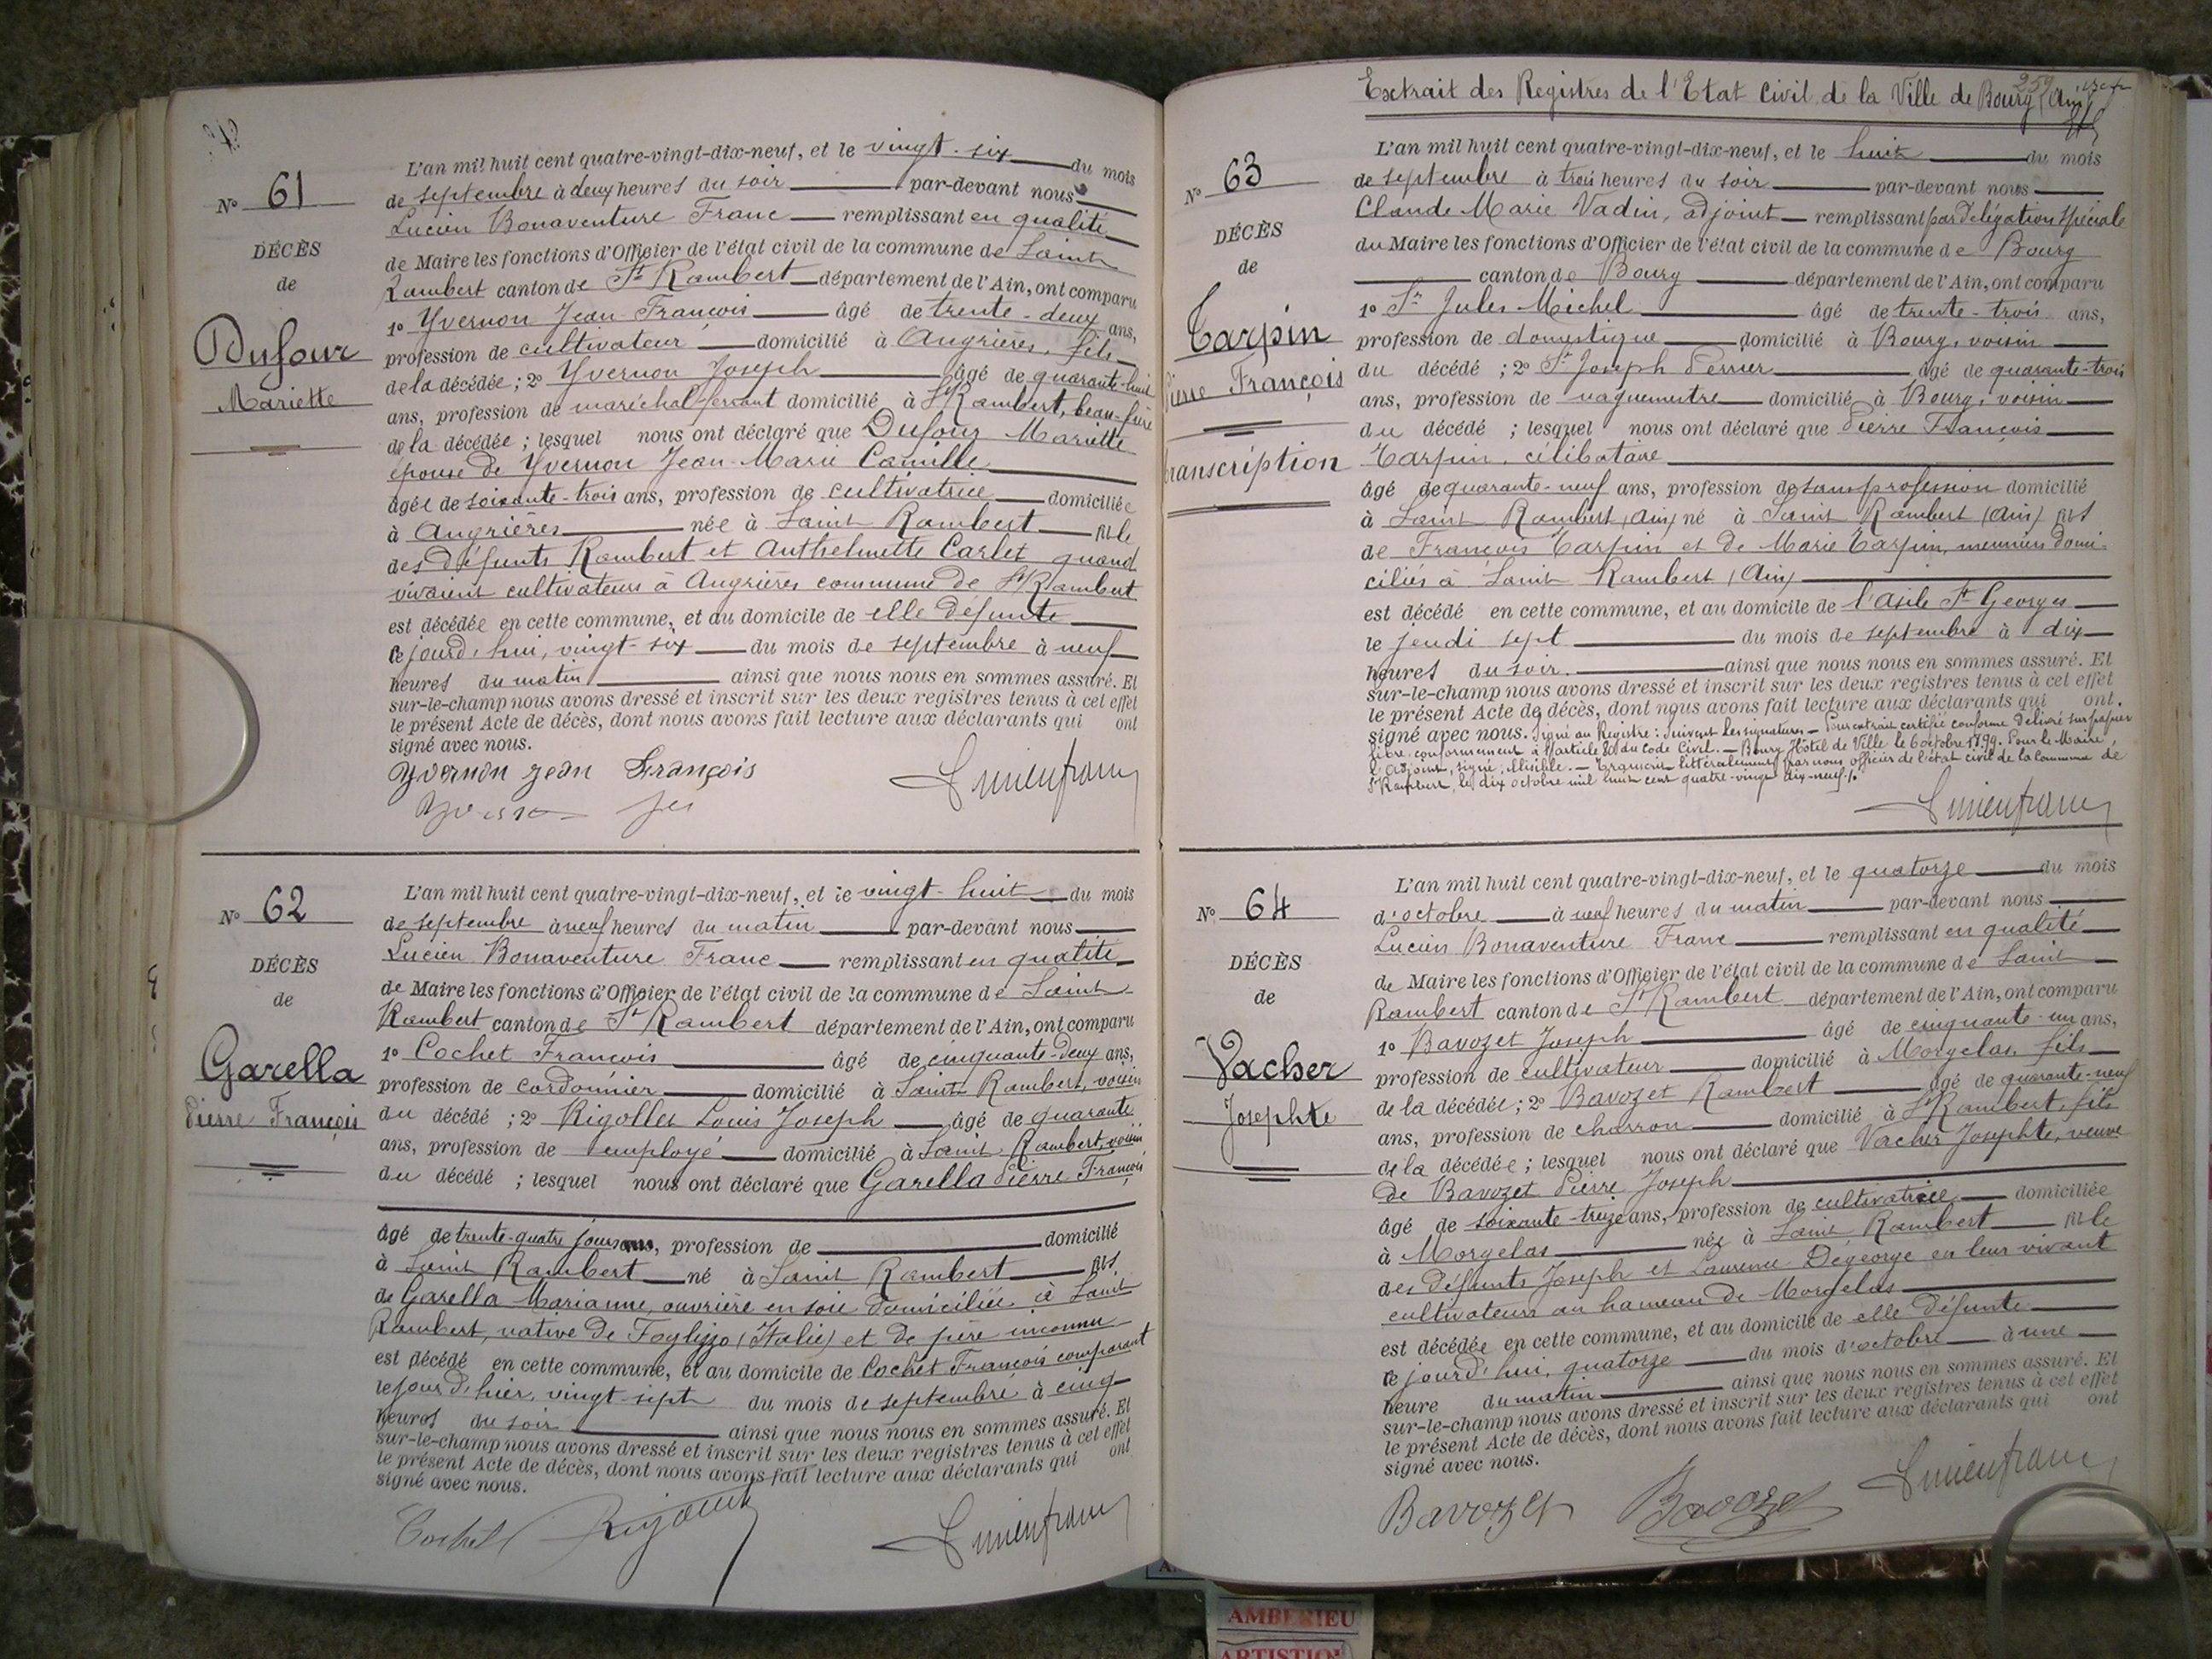 No 61
DÉCÈS
de
Dufour
Mariette
L'an mil huit cent quatre-vingt-dix-neuf, et le vingt-six du mois
de septembre à deux heures du soir par-devant nous
Lucien Bonaventure Franc remplissant en qualité
de Maire les fonctions d'Officier de l'état civil de la commune de Saint
Rambert canton de St Rambert département de l'Ain, ont comparu
1o Yvernon Jean-François âgé de trente-deux ans,
profession de cultivateur domicilié à Angrières, fils
de la décédée ; 2o Yvernon Joseph âgé de quarante-huit
ans, profession de maréchal-ferrant domicilié à St Rambert, beau-frère
de la décédée ; lesquel nous ont déclaré que Dufour Mariette
épouse de Yvernon Jean-Marie Camille
âgée de soixante-trois ans, profession de cultivatrice domiciliée
à Angrières née à Saint Rambert fille
des défunts Rambert et Anthelmette Carlet quand
vivaient cultivateurs à Angrières commune de St Rambert
est décédée en cette commune, et au domicile de elle défunte
le jourd'hui, vingt-six du mois de septembre à neuf
heures du matin ainsi que nous nous en sommes assuré. Et
sur-le-champ nous avons dressé et inscrit sur les deux registres tenus à cet effet
le présent Acte de décès, dont nous avons fait lecture aux déclarants qui ont
signé avec nous.
Yvernon Jean François
Lucien franc
No 62
DÉCÈS
de
Garella
Pierre François
L'an mil huit cent quatre-vingt-dix-neuf, et le vingt-huit du mois
de septembre à neuf heures du matin par-devant nous
Lucien Bonaventure Franc remplissant en qualité
de Maire les fonctions d'Officier de l'état civil de la commune de Saint
Rambert canton de St Rambert département de l'Ain, ont comparu
1o Cochet François âgé de cinquante-deux ans,
profession de cordonnier domicilié à Saint Rambert, voisin
du décédé ; 2o Rigollet Louis Joseph âgé de quarante
ans, profession de employé domicilié à Saint Rambert, voisin
du décédé ; lesquel nous ont déclaré que Garella Pierre François
âgé de trente-quatre jours ans, profession de domicilié
à Saint Rambert né à Saint Rambert fils
de Garella Marianne, ouvrière en soie domiciliée à Saint
Rambert, native de Foglizzo (Italie) et de père inconnu
est décédé en cette commune, et au domicile de Cochet François comparant
le jour d'hier, vingt-sept du mois de septembre à cinq
heures du soir ainsi que nous nous en sommes assuré. Et
sur-le-champ nous avons dressé et inscrit sur les deux registres tenus à cet effet
le présent Acte de décès, dont nous avons fait lecture aux déclarants qui ont
signé avec nous.
Cochet
Lucien franc
Extrait des Registres de l'Etat Civil de la Ville de Bourg (Ain)
No 63
DÉCÈS
de
Tarpin
Pierre François
transcription
L'an mil huit cent quatre-vingt-dix-neuf, et le huit du mois
de septembre à trois heures du soir par-devant nous
Claude Marie Vadin, adjoint remplissant par délégation spéciale
du Maire les fonctions d'Officier de l'état civil de la commune de Bourg
canton de Bourg département de l'Ain, ont comparu
1o Sr Jules Michel âgé de trente-trois ans,
profession de domestique domicilié à Bourg, voisin
du décédé ; 2o Sr Joseph Perrier âgé de quarante-trois
ans, profession de vaguemestre domicilié à Bourg, voisin
du décédé ; lesquel nous ont déclaré que Pierre François
Tarpin, célibataire
âgé de quarante-neuf ans, profession de sans profession domicilié
à Saint Rambert (Ain) né à Saint Rambert (Ain) fils
de François Tarpin et de Marie Tarpin, meuniers domi-
ciliés à Saint Rambert (Ain)
est décédé en cette commune, et au domicile de l'asile St Georges
le jeudi sept du mois de septembre à dix
heures du soir. ainsi que nous nous en sommes assuré. Et
sur-le-champ nous avons dressé et inscrit sur les deux registres tenus à cet effet
le présent Acte de décès, dont nous avons fait lecture aux déclarants qui ont.
signé avec nous. Signé au Registre : suivent les signatures – Pour extrait certifié conforme délivré sur papier
libre conformément à l'article 80 du Code Civil. – Bourg Hôtel de Ville le 6 octobre 1899. Pour le Maire,
l'adjoint, signé, illisible. – Transcrit littéralement par nous officier de l'état civil de la commune de
St Rambert, le dix octobre mil huit cent quatre-vingt dix-neuf.
Lucien franc
No 64
DÉCÈS
de
Vacher
Josephte
L'an mil huit cent quatre-vingt-dix-neuf, et le quatorze du mois
d'octobre à neuf heures du matin par-devant nous
Lucien Bonaventure Franc remplissant en qualité
de Maire les fonctions d'Officier de l'état civil de la commune de Saint
Rambert canton de St Rambert département de l'Ain, ont comparu
1o Bavozet Joseph âgé de cinquante-un ans,
profession de cultivateur domicilié à Morgelas, fils
de la décédée ; 2o Bavozet Rambert âgé de quarante-neuf
ans, profession de charron domicilié à St Rambert, fils
de la décédée ; lesquel nous ont déclaré que Vacher Josephte, veuve
de Bavozet Pierre Joseph
âgé de soixante-treize ans, profession de cultivatrice domiciliée
à Morgelas née à Saint Rambert fille
des défunts Joseph et Laurence Degeorge en leur vivant
cultivateurs au hameau de Morgelas
est décédée en cette commune, et au domicile de elle défunte
le jourd'hui, quatorze du mois d'octobre à une
heure du matin ainsi que nous nous en sommes assuré. Et
sur-le-champ nous avons dressé et inscrit sur les deux registres tenus à cet effet
le présent Acte de décès, dont nous avons fait lecture aux déclarants qui ont
signé avec nous.
Bavozet Bavozet Lucien franc
AMBERIEU